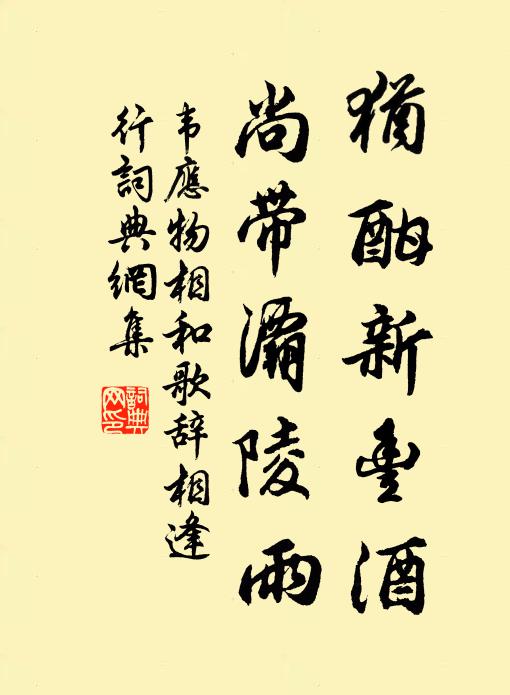 猶酣新豊酒
尚带灞陵雨
韦應物相和歌辞相逢
行詞典網集
詞典
网印